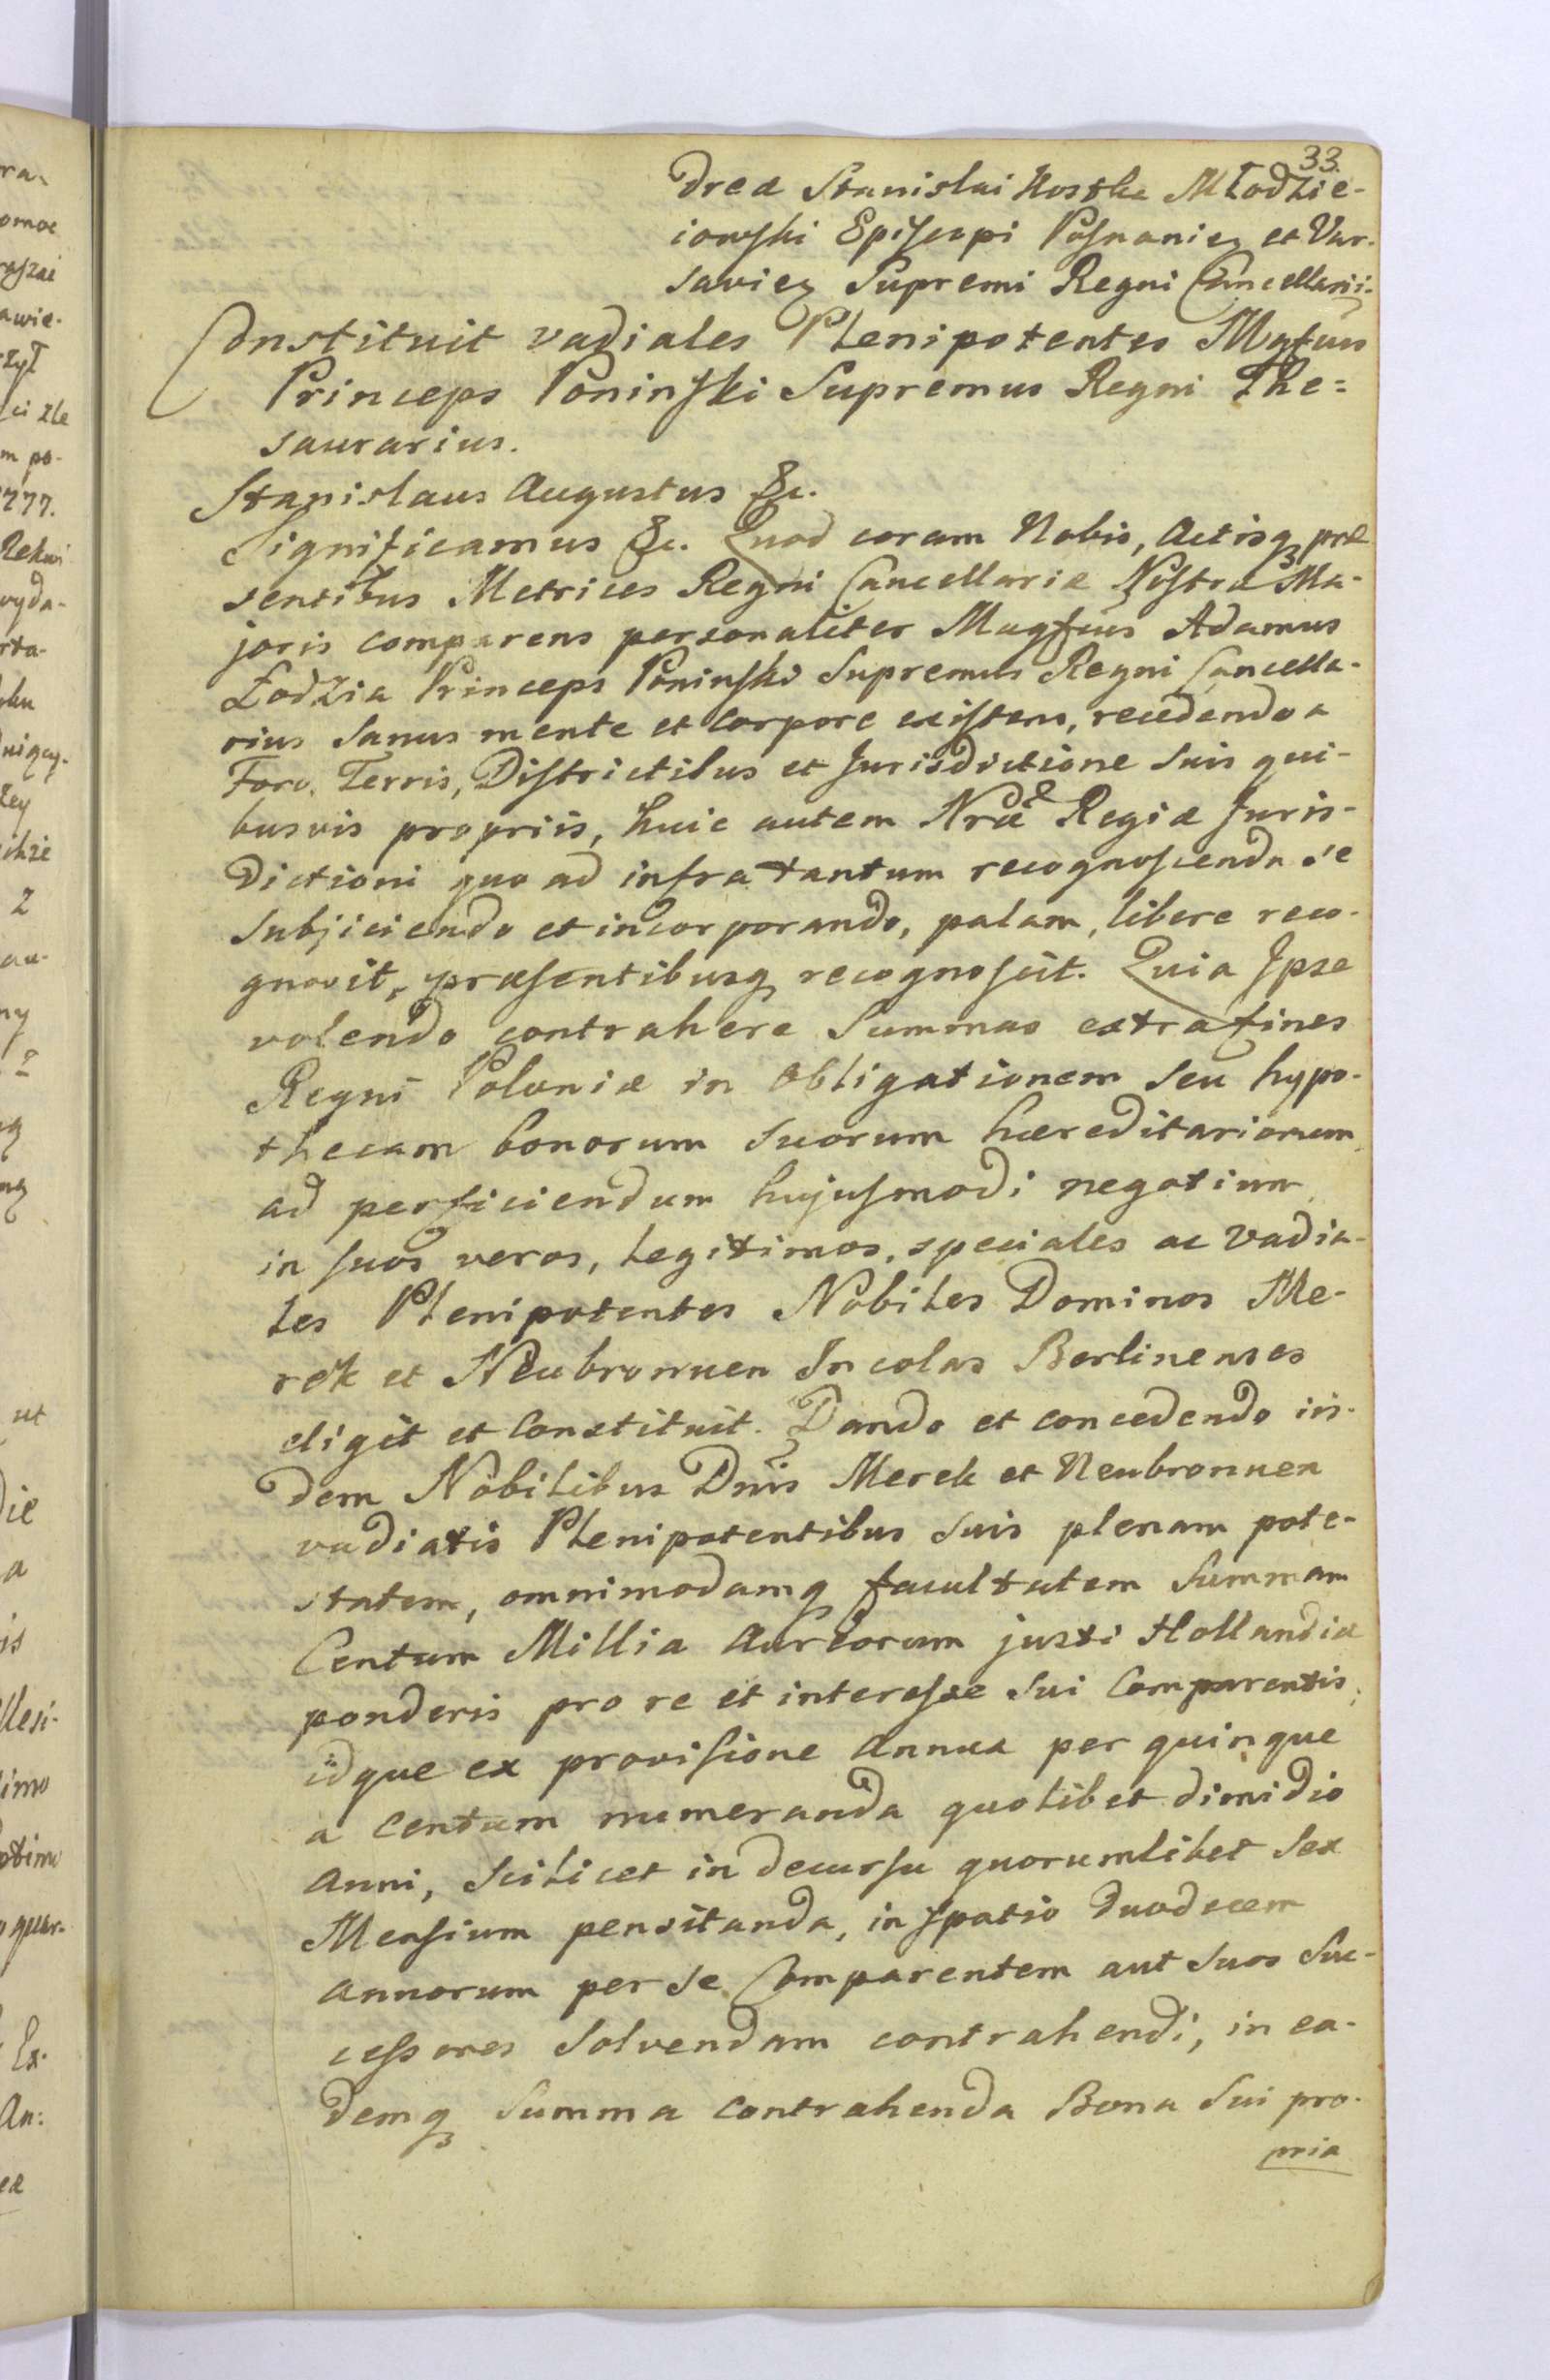 33.
dreæ Stanislai Kostka Młodzie-
iowski Episcopi Posnanieꝫ et Var-
savieꝫ Supremi Regni Cancellarii.
Constituit vadiales Plenipotentes Mgfcus
Princeps Poninski Supremus Regni The=
saurarius.
Stanislaus Augustus &c.
Significamus &c. Quod coram Nobis, Actisqꝫ præ
sentibus Metrices Regni Cancellariæ Nostræ Ma-
joris comparens personaliter Magfcus Adamus
Łodzia Princeps Poninski Supremus Regni Cancella-
rius sanus mente et corpore existens, recedendo a
Foro, Terris, Districtibus et Jurisdictione suis qui-
busvis propriis, huic autem Nræ Regiæ Juris-
dictioni quo ad infra tantum recognoscenda se
subjiciendo et incorporando, palam, libere reco-
gnovit, præsentibusqꝫ recognoscit. Quia Ipse
volendo contrahere Summas extra fines
Regni Poloniæ in obligationem seu hypo-
thecam bonorum suorum hæreditariorum
ad perficiendum hujusmodi negotium
in suos veros, legitimos, speciales ac vadia-
les Plenipotentes Nobiles Dominos Me-
rek et Neubronnen Incolas Berlinenses
eligit et Constituit. Dando et concedendo iis-
dem Nobilibus Dnis Merek et Neubronnen
vadiatis Plenipotentibus suis plenam pote-
statem, omnimodamqꝫ facultatem Summam
Centum Millia Aureorum justi Hollandiæ
ponderis pro re et interesse sui Comparentis,
idque ex provisione annua per quinque
a centum numeranda quolibet dimidio
anni, scilicet in decursu quorumlibet sex
Mensium pensitanda, in spatio duodecem
annorum per se Comparentem aut suos suc-
cessores solvendam contrahendi, in ea-
demqꝫ summa contrahenda Bona sui pro-
pria